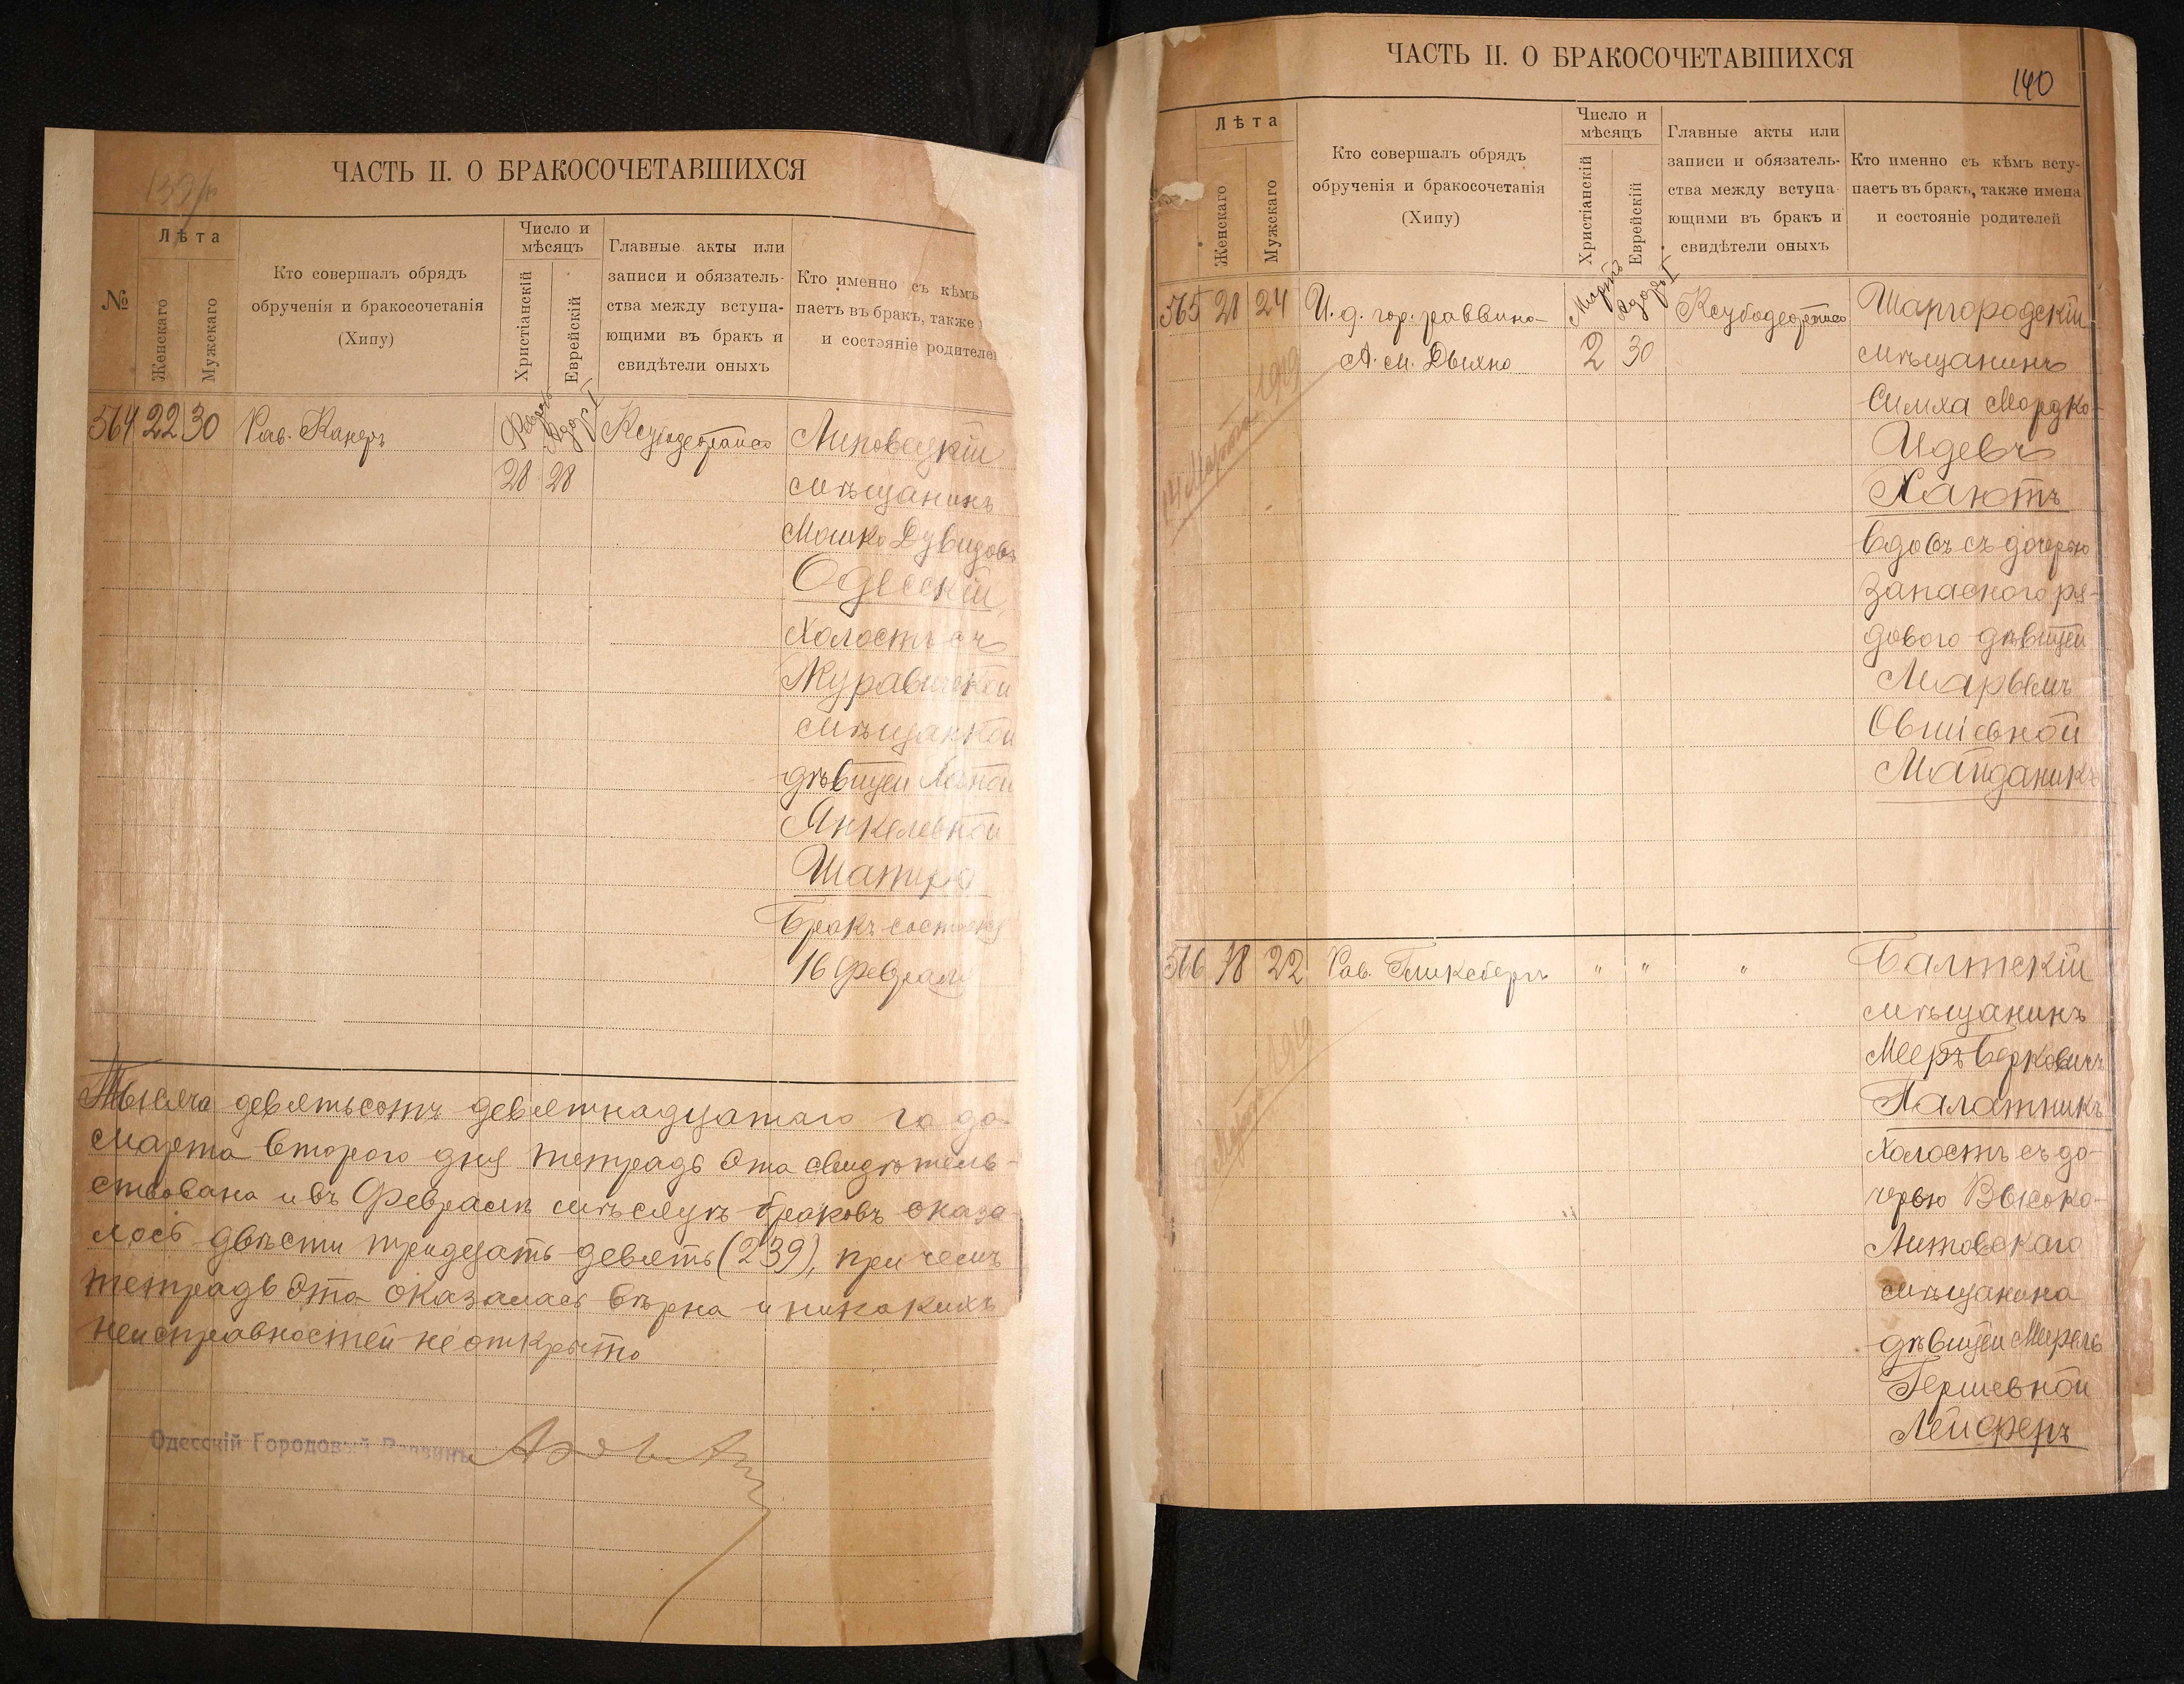 139/п
ЧАСТЬ II. О БРАКОСОЧЕТАВШИХСЯ
№
Лѣта
Женскаго
Мужескаго
Кто совершалъ обрядъ
обрученія и бракосочетанія
(Хипу)
Число и
мѣсяцъ
Христіанскій
Еврейскій
Главные акты или
записи и обязатель-
ства между вступа-
ющими въ бракъ и
свидѣтели оныхъ
Кто именно съ кѣмъ
паетъ въ бракъ, также
и состояніе родителе
564 22 30 Рав. Канеръ
28 28
Липовецкій
мѣщанинъ
Мошко Дувидовъ
Одесскій,
холостъ съ
мѣщанкой
дѣвицей
Янкелевной
Шапиро
Бракъ состоялся
16 Февраля
Тысяча девятьсотъ девятнадцатаго года
марта второго дня тетрадь эта свидѣтель-
ствована и въ Февралѣ мѣсяцѣ браковъ оказа-
лось двѣсти тридцать девять (239), при чемъ
тетрадь эта оказалась вѣрна и никакихъ
неисправностей не открыто
Одесскій Городовой Раввинъ
140
ЧАСТЬ II. О БРАКОСОЧЕТАВШИХСЯ
Лѣта
Женскаго
Мужскаго
Кто совершалъ обрядъ
обрученія и бракосочетанія
(Хипу)
Число и
мѣсяцъ
Христіанскій
Еврейскій
Главные акты или
записи и обязатель-
ства между вступа-
ющими въ бракъ и
свидѣтели оныхъ
Кто именно съ кѣмъ всту-
паетъ въ бракъ, также имена
и состояніе родителей
565 28 24 И. д. гор. раввина
А. м. Дыхно
Мартъ
2 30
Шаргородскій
мѣщанинъ
Симха Мордко-
Идевъ
Хаютъ
вдовъ съ дочерью
запасного ря-
дового дѣвицей
Марьемъ
Овшіевной
Майданикъ
14 Марта 1919
566 18 22 Рав. Гликсбергъ " " "
Балтскій
мѣщанинъ
Мееръ Берковичъ
Палатникъ
холостъ съ до-
черью Высоко-
Литовскаго
мѣщанина
дѣвицей
Гершевной
Лейферъ